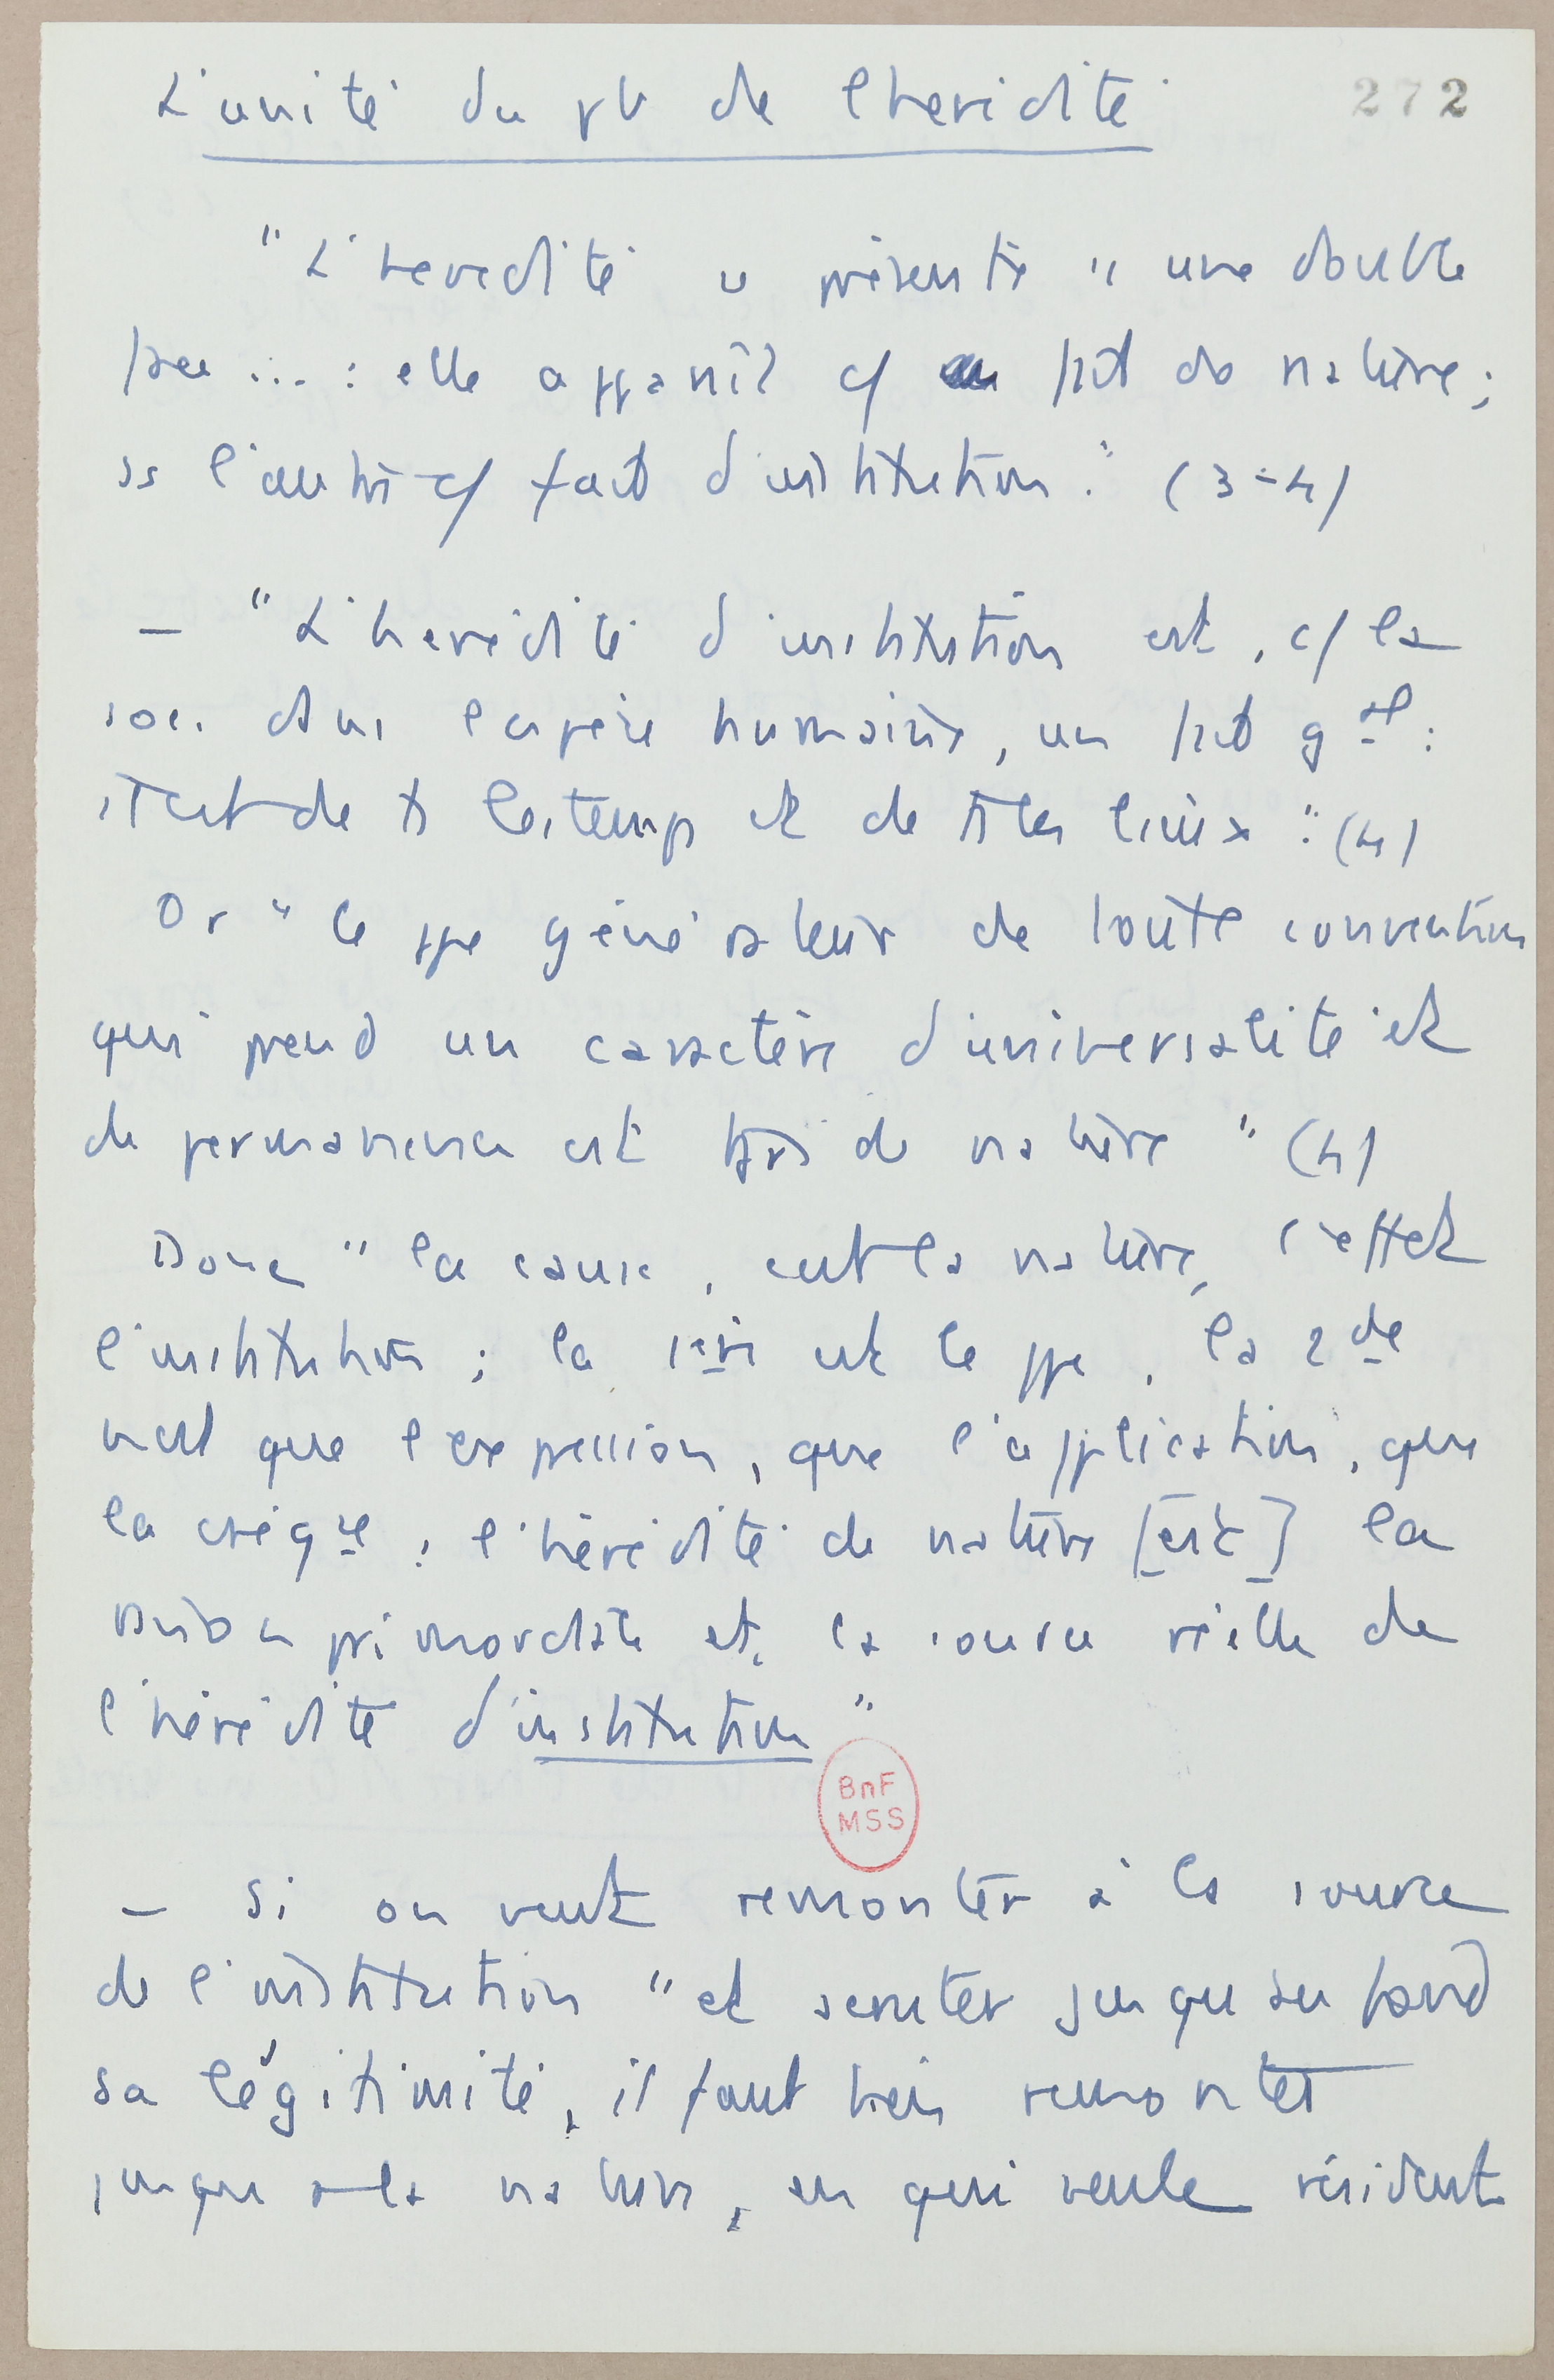 L'unité du pb de l'heredité
272
"L'heredité se présente ss une double
face ... : elle apparaît c/ fait de nature ;
ss l'autre c/ fait d'institution." (3-4)
– "L'heredité d'institution est, c/ la
soc. dans l'espèce humaine, un fait gal :
il est de ts les temps et de ts les lieux." (4)
Or "le ppe générateur de toute convention
qui prend un caractère d'universalité et
de permanence est tiré de nature" (4)
Donc "la cause, c'est la nature, l'effet
l'institution ; la 1ere est le ppe, la 2de
n'est que l'expression, que l'application, que
la cséqce : l'hérédité de nature [est] la
raison primordiale et la source réelle de
l'hérédité d'institution"
BnF
MSS
– Si on veut remonter à la source
de l'institution "et scruter jusqu'au fond
sa légitimité, il faut bien remonter
jusqu'à la nature, en qui seule résident